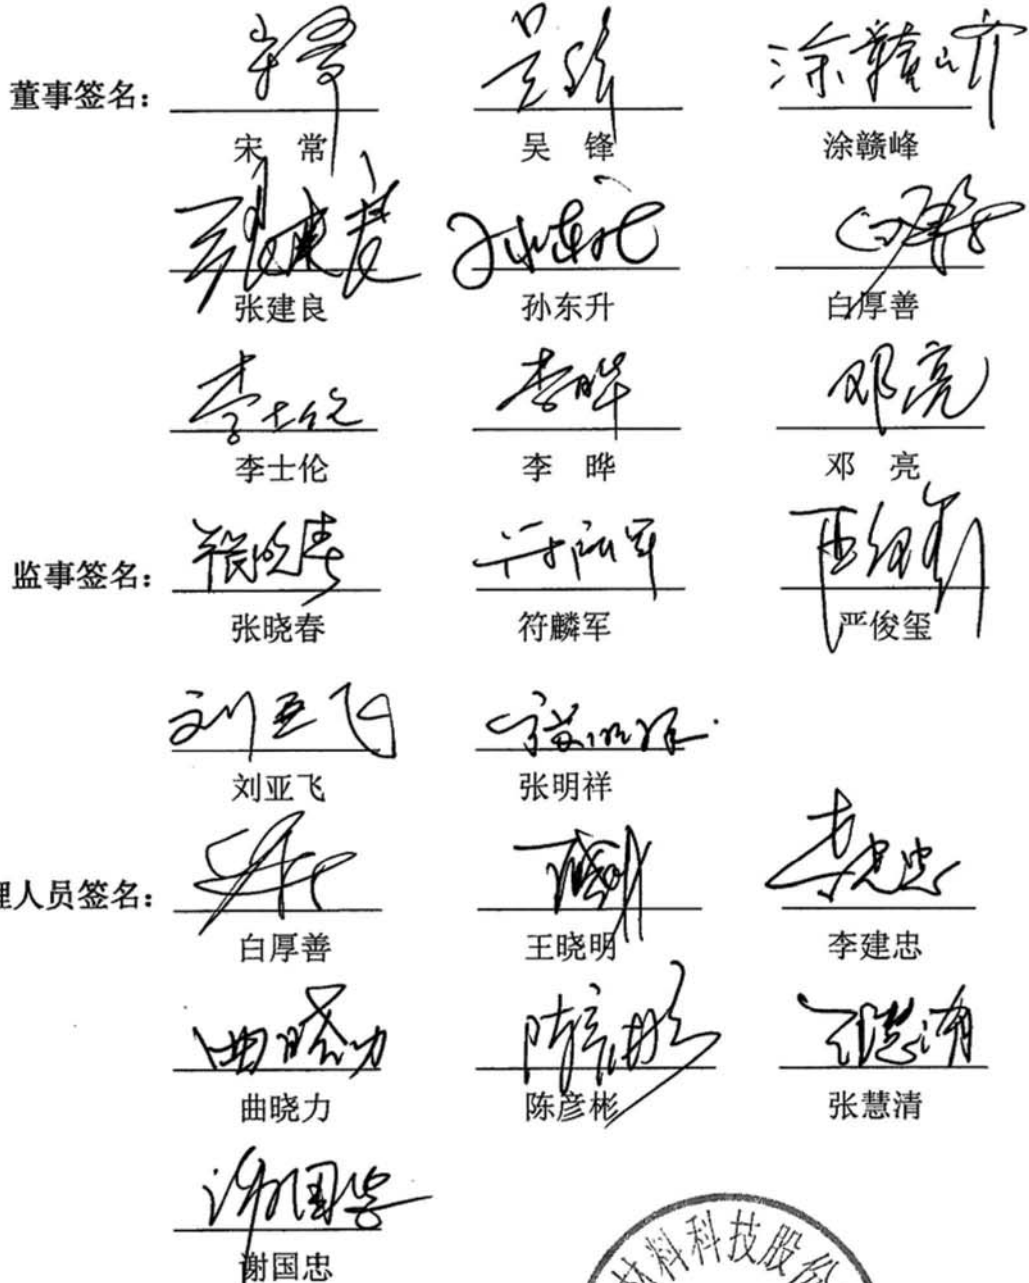 董事签名：
宋 常 吴 锋 涂赣峰
张建良 孙东升 白厚善
李士伦 李 晔 邓 亮
监事签名：
张晓春 符麟军 严俊玺
刘亚飞 张明祥
理人员签名：
白厚善 王晓明 李建忠
曲晓力 陈彦彬 张慧清
谢国忠
材料科技股份